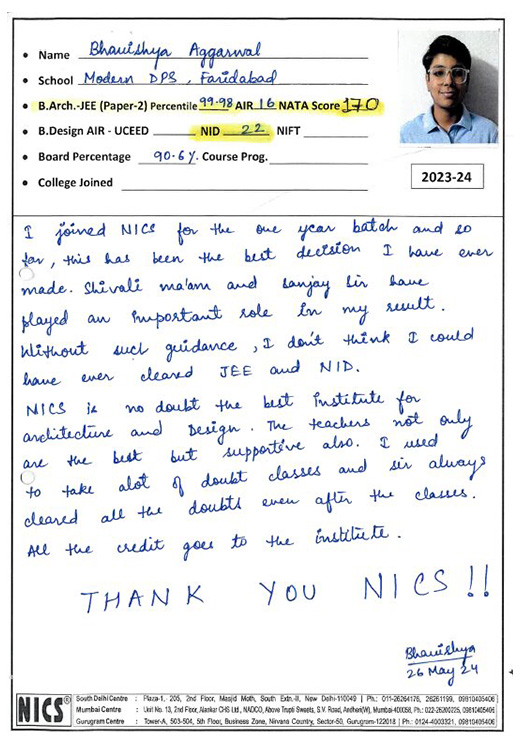 • Name Bhavishya Aggarwal
• School Modern DPS, Faridabad
• B.Arch.-JEE (Paper-2) Percentile 99.98 AIR 16 NATA Score 170
• B.Design AIR - UCEED NID 22 NIFT
• Board Percentage 90.6%. Course Prog.
• College Joined
2023-24
I joined NICS for the one year batch and so
far, this has been the best decision I have ever
made. Shivali ma'am and sanjay sir have
played an important role in my result.
Without such guidance, I don't think I could
have ever cleared JEE and NID.
NICS is no doubt the best institute for
architecture and Design. The teachers not only
are the best but supportive also. I used
to take alot of doubt classes and sir always
cleared all the doubts even after the classes.
All the credit goes to the institute.
THANK YOU NICS!!
Bhavishya
26 May 24
NICS®
South Delhi Centre : Plaza-1, 205, 2nd Floor, Masjid Moth, South Extn.-II, New Delhi-110049 | Ph.: 011-26264176, 26261199, 09810405406
Mumbai Centre : Unit No. 13, 2nd Floor, Alankar CHS Ltd., NADCO, Above Trupti Sweets, S.V. Road, Andheri(W), Mumbai-400058, Ph.: 022-26200225, 09810405406
Gurugram Centre : Tower-A, 503-504, 5th Floor, Business Zone, Nirvana Country, Sector-50, Gurugram-122018 | Ph.: 0124-4003321, 09810405406